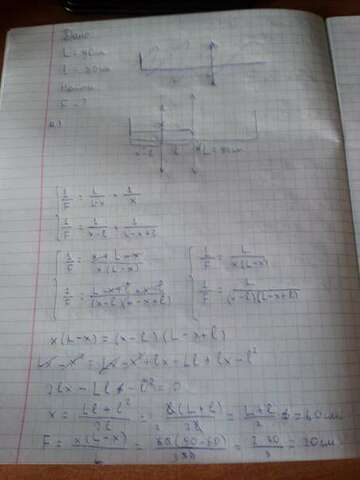 Дано
L = 90 см
l = 30 см
Найти
F - ?
x-l l L = 90 см
1/F = 1/(L-x) + 1/x
1/F = 1/(x-l) + 1/(L-x+l)
1/F = (x+L-x)/(x(L-x)) 1/F = L/(x(L-x))
1/F = (L-x+l+x-l)/((x-l)(L-x+l)) 1/F = L/((x-l)(L-x+l))
x(L-x) = (x-l)(L-x+l)
Lx - x² = Lx - x² + lx - Ll + lx - l²
2lx - Ll - l² = 0
x = (Ll + l²)/2l = l(L+l)/2l = (L+l)/2 = 60 см
F = x(L-x)/L = 60(90-60)/90 = 2·30/3 = 20 см